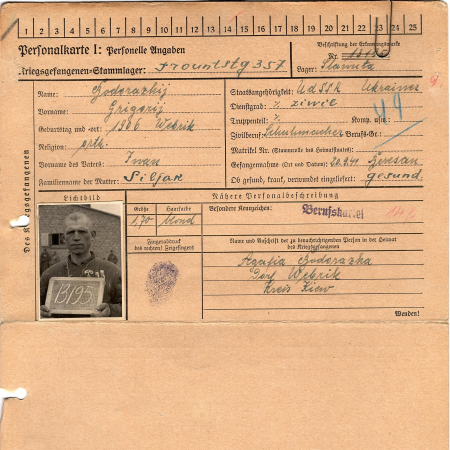 1 2 3 4 5 6 7 8 9 10 11 12 13 14 15 16 17 18 19 20 21 22 23 24 25
Personalkarte I: Personelle Angaben
Kriegsgefangenen-Stammlager: Frontstg 357
Beschriftung der Erkennungsmarke
Nr.
Lager: Slawuta
Des Kriegsgefangenen
Name: Godorazkij
Vorname: Grigorij
Geburtstag und -ort: 1906 Webrik
Religion: orth.
Vorname des Vaters: Iwan
Familienname der Mutter: Siljak
Staatsangehörigkeit: UdSSR Ukrainer
Dienstgrad: % ziwil
Truppenteil: % Komp. usw.:
49
Zivilberuf: Schuhmacher Berufs-Gr.:
Matrikel Nr. (Stammrolle des Heimatstaates):
Gefangennahme (Ort und Datum): 20.9.41
Ob gesund, krank, verwundet eingeliefert: gesund.
Lichtbild
Nähere Personalbeschreibung
Größe
Haarfarbe
Besondere Kennzeichen:
1,70
blond
Fingerabdruck
des rechten! Zeigefinger!
Name und Anschrift der zu benachrichtigenden Person in der Heimat
des Kriegsgefangenen
Agafia Godorazka
Dorf Webrik
Kreis Kiew
B195
Wenden!